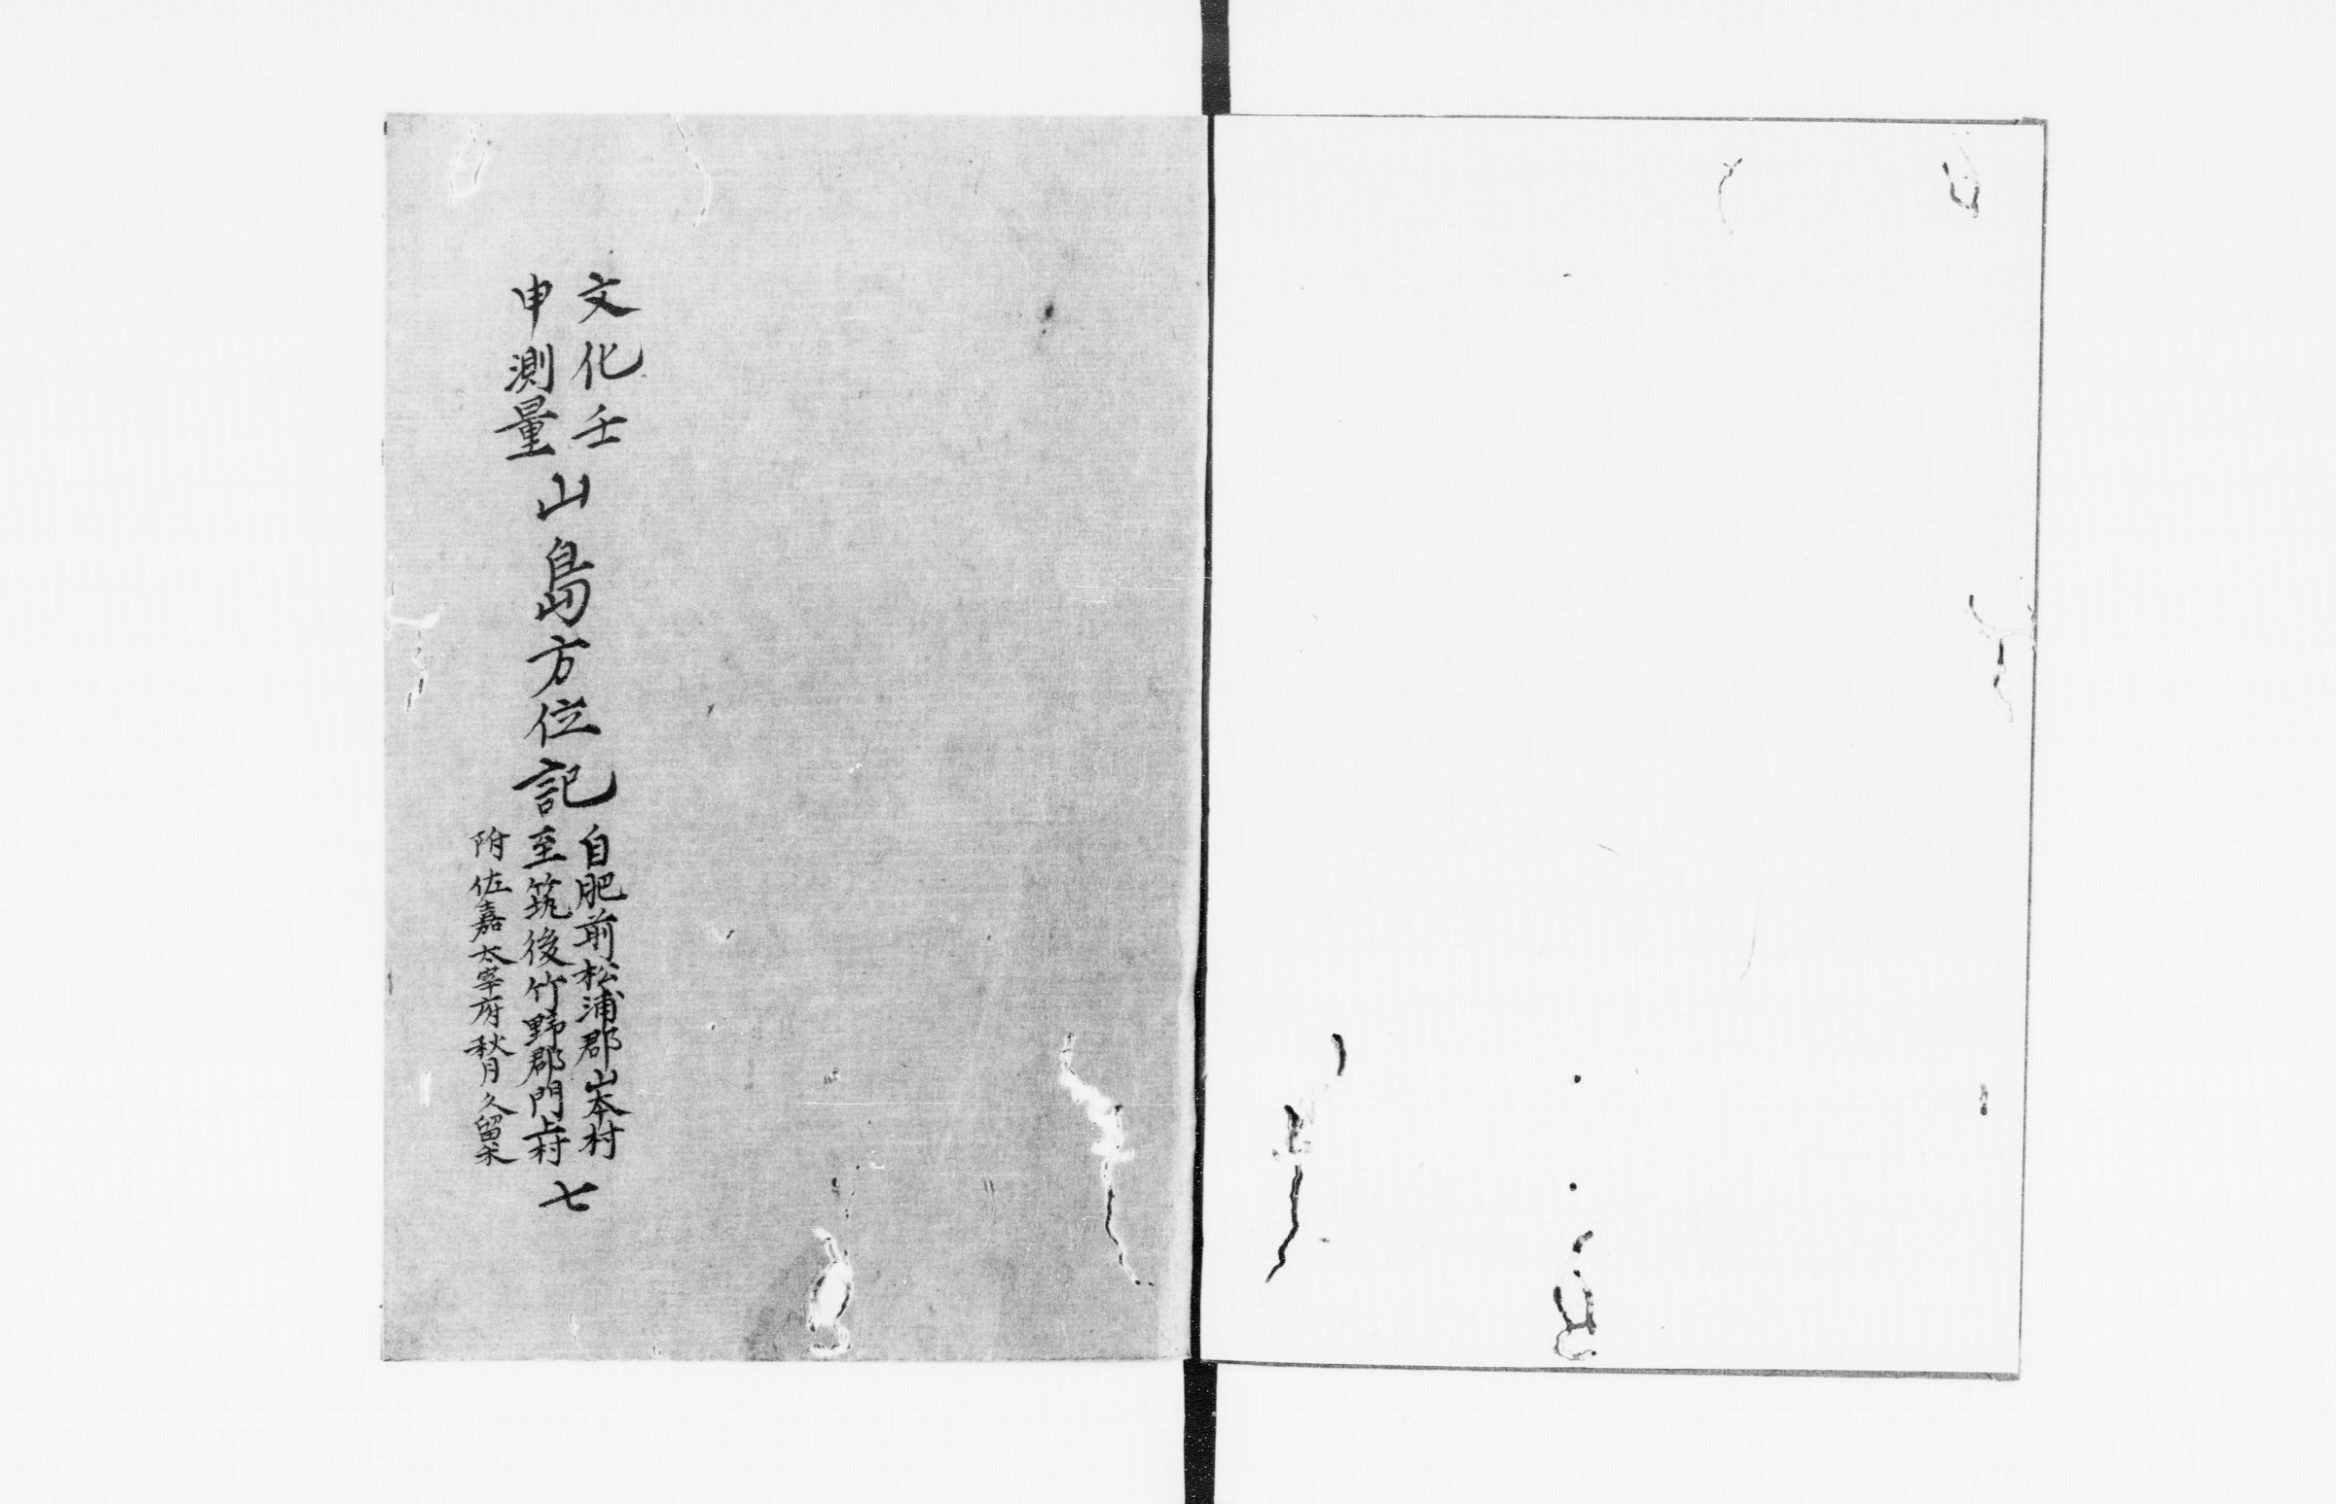 文化壬
申測量
山島方位記
自肥前松浦郡山本村
至筑後竹野郡門上村
附佐嘉太宰府秋月久留米
七